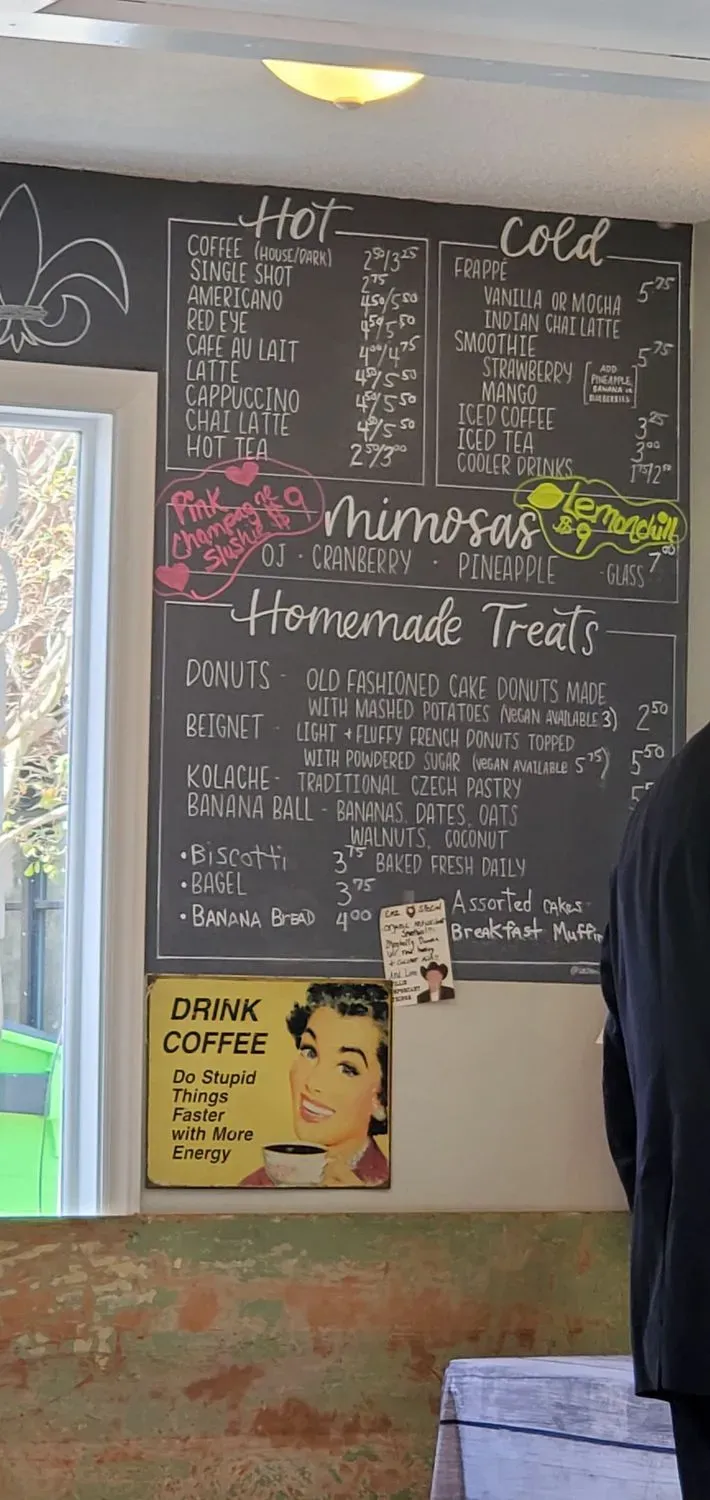 Hot
COFFEE (HOUSE/DARK) 2⁵⁰/3²⁵
SINGLE SHOT 2⁷⁵
AMERICANO 4⁵⁰/5⁵⁰
RED EYE 4⁵⁰/5⁵⁰
CAFE AU LAIT 4⁰⁰/4⁷⁵
LATTE 4⁵⁰/5⁵⁰
CAPPUCCINO 4⁵⁰/5⁵⁰
CHAI LATTE 4⁵⁰/5⁵⁰
HOT TEA 2⁵⁰/3⁰⁰
Cold
FRAPPÉ 5⁷⁵
VANILLA OR MOCHA
INDIAN CHAI LATTE
SMOOTHIE 5⁷⁵
STRAWBERRY
MANGO
ADD
PINEAPPLE,
BANANA OR
BLUEBERRIES
ICED COFFEE 3²⁵
ICED TEA 3⁰⁰
COOLER DRINKS 1⁷⁵/2⁵⁰
Pink
Champagne $9
Slushie
mimosas
Lemonchill
$9
OJ · CRANBERRY · PINEAPPLE -GLASS 7⁰⁰
Homemade Treats
DONUTS - OLD FASHIONED CAKE DONUTS MADE
WITH MASHED POTATOES (VEGAN AVAILABLE 3) 2⁵⁰
BEIGNET - LIGHT + FLUFFY FRENCH DONUTS TOPPED
WITH POWDERED SUGAR (VEGAN AVAILABLE 5⁷⁵) 5⁵⁰
KOLACHE - TRADITIONAL CZECH PASTRY
BANANA BALL - BANANAS, DATES, OATS
WALNUTS, COCONUT
• Biscotti 3⁷⁵ BAKED FRESH DAILY
• BAGEL 3⁷⁵
• BANANA BREAD 4⁰⁰
Assorted cakes
Breakfast
DRINK
COFFEE
Do Stupid
Things
Faster
with More
Energy